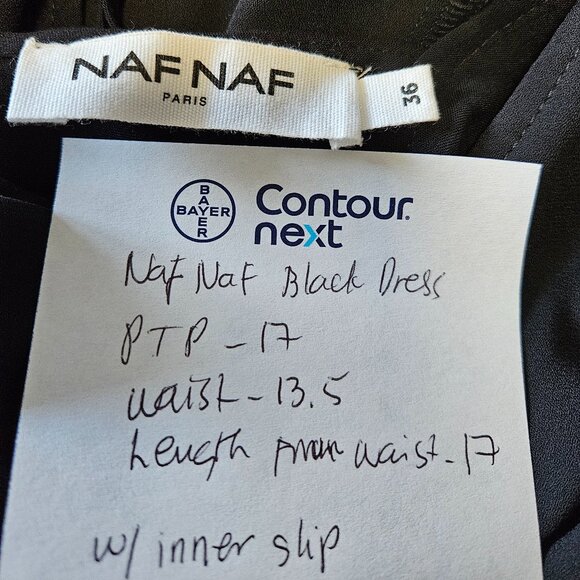 NAF NAF
PARIS
36
BAYER
BAYER
Contour
next
Naf Naf Black Dress
PTP - 17
waist - 13.5
Length from waist - 17
w/ inner slip